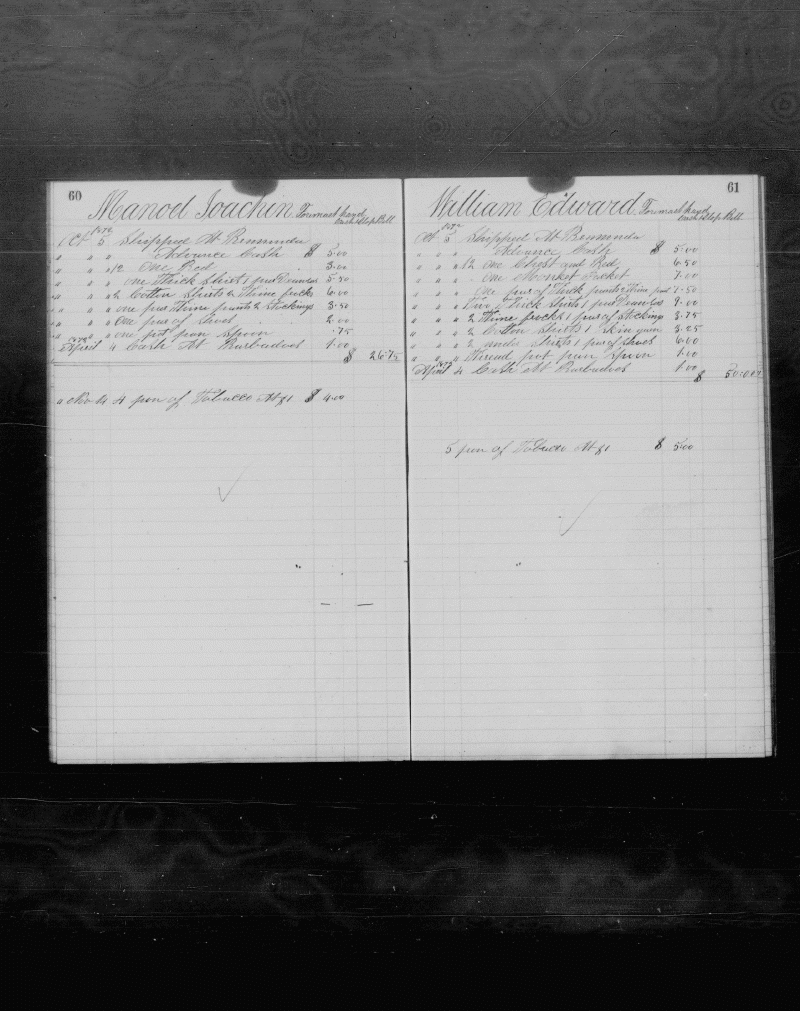 60
Manoel Joachin Foremast hand
Cash & Slop Bill
1872
Oct 5 Shipped At Bermuda
" " " Advance Cash $ 5.00
" " " 12 One Bed 3.00
" " " one Thick Shirt 1 pair Drawers 5.50
" " " 2 Cotton Shirts 2 Thine frocks 6.00
" " " one pair Thine pants 2 Stockings 3.50
" " " One pair of Shoes 2.00
" " " one pot pan Spoin .75
1873
April " Cash At Barbadoes 1.00
$ 26.75
4 pon of Tobacco At $1 $ 4.00
61
William Edward Foremast hand
Cash & Slop Bill
1872
Oct 5 Shipped At Bermuda
" " " Advance Cash $ 5.00
" " " 12 one Chest and Bed 6.50
" " " one Monkey Jacket 7.00
" " " one pair of Thick pants 2 Thin 7.50
" " " Two Thick Shirts 1 pair Drawers 9.00
" " " 2 Thine frocks 1 pair of Stockings 3.75
" " " 2 Cotton Shirts 1 3.25
" " " 2 under Shirts 1 pair of Shoes 6.00
" " " Thread pot pan Spoin 1.00
1873
April 4 Cash At Barbadoes 1.00
$ 50.00
5 pon of Tobacco At $1 $ 5.00